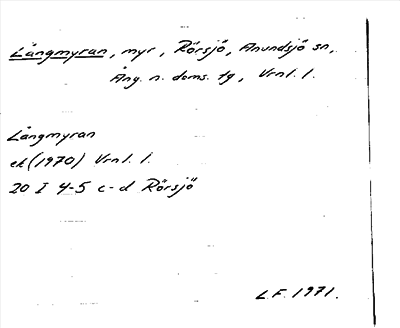 Långmyran, myr, Rörsjö, Anundsjö sn,
Ång. n. doms. tg, Vrnl. l.
Långmyran
ek (1970) Vrnl. l.
20 I 4-5 c-d Rörsjö
L.F. 1971.